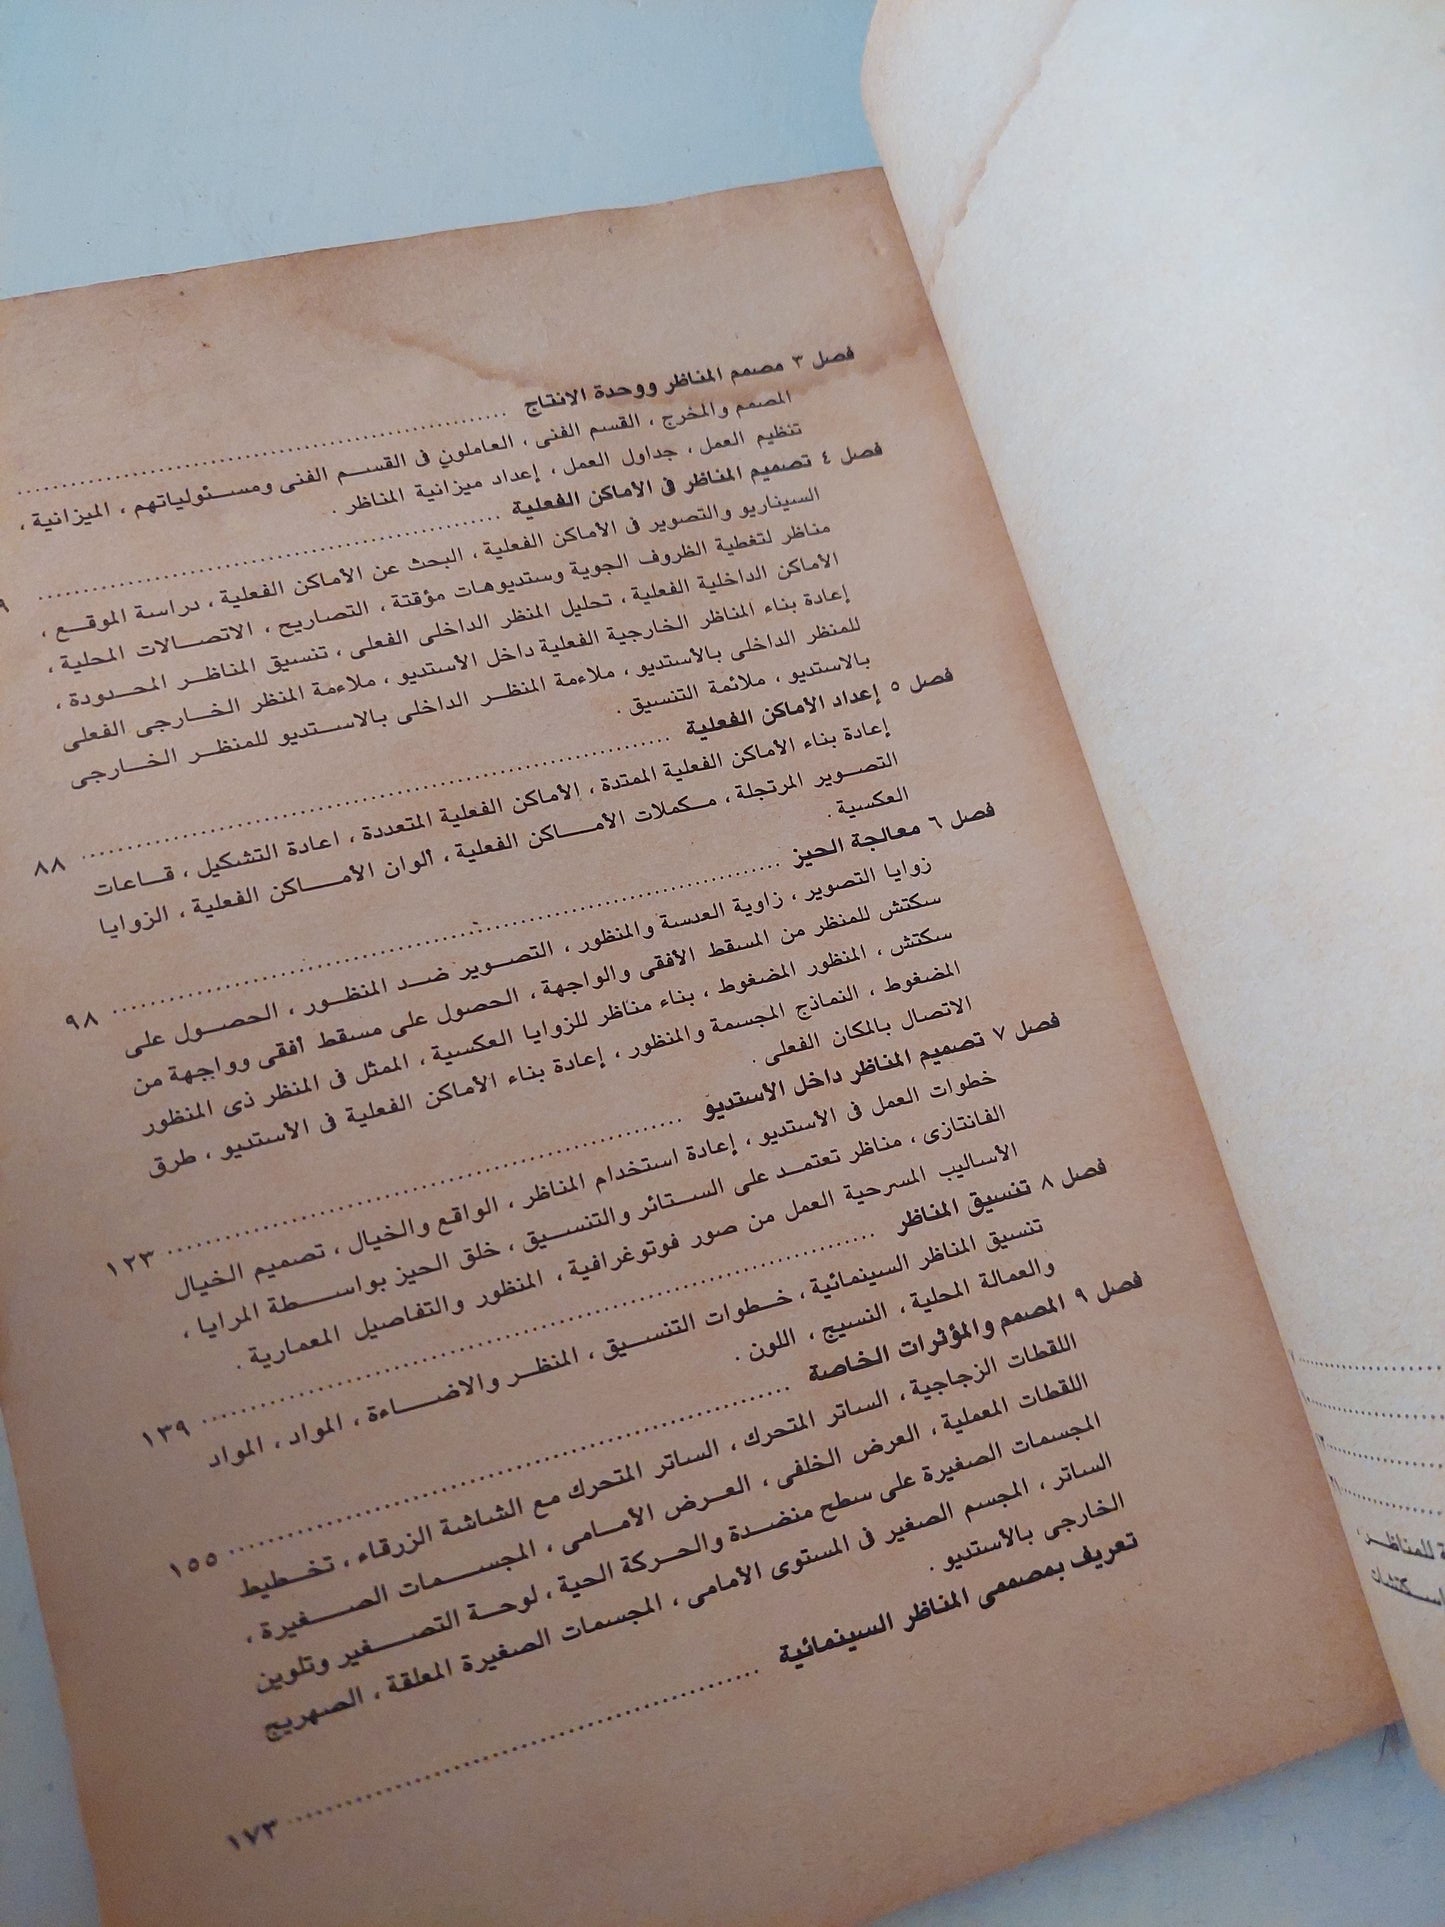 فصل ٣ مصمم المناظر ووحدة الانتاج ........................
المصمم والمخرج ، القسم الفنى ، العاملون فى القسم الفنى ومسئولياتهم ، الميزانية ،
تنظيم العمل ، جداول العمل ، إعداد ميزانية المناظر .
فصل ٤ تصميم المناظر فى الأماكن الفعلية ........................ ٩
السيناريو والتصوير فى الأماكن الفعلية ، البحث عن الأماكن الفعلية ، دراسة الموقع ،
مناظر لتغطية الظروف الجوية وستديوهات مؤقتة ، التصاريح ، الاتصالات المحلية ،
الأماكن الداخلية الفعلية ، تحليل المنظر الداخلى الفعلى ، تنسيق المناظر المحدودة ،
إعادة بناء المناظر الخارجية الفعلية داخل الأستديو ، ملاءمة المنظر الخارجى الفعلى
للمنظر الداخلى بالأستديو ، ملاءمة المنظر الداخلى بالاستديو للمنظر الخارجى
بالاستديو ، ملائمة التنسيق .
فصل ٥ إعداد الأماكن الفعلية ........................ ٨٨
إعادة بناء الأماكن الفعلية الممتدة ، الأماكن الفعلية المتعددة ، اعادة التشكيل ، قاعات
التصوير المرتجلة ، مكملات الأماكن الفعلية ، ألوان الأماكن الفعلية ، الزوايا
العكسية .
فصل ٦ معالجة الحيز ........................ ٩٨
زوايا التصوير ، زاوية العدسة والمنظور ، التصوير ضد المنظور ، الحصول على
سكتش للمنظر من المسقط الأفقى والواجهة ، الحصول على مسقط أفقى وواجهة من
سكتش ، المنظور المضغوط ، بناء مناظر للزوايا العكسية ، الممثل فى المنظر ذى المنظور
المضغوط ، النماذج المجسمة والمنظور ، إعادة بناء الأماكن الفعلية فى الأستديو ، طرق
الاتصال بالمكان الفعلى .
فصل ٧ تصميم المناظر داخل الأستديو ........................ ١٢٣
خطوات العمل فى الأستديو ، إعادة استخدام المناظر ، الواقع والخيال ، تصميم الخيال
الفانتازى ، مناظر تعتمد على الستائر والتنسيق ، خلق الحيز بواسطة المرايا ،
الأساليب المسرحية العمل من صور فوتوغرافية ، المنظور والتفاصيل المعمارية .
فصل ٨ تنسيق المناظر ........................ ١٣٩
تنسيق المناظر السينمائية ، خطوات التنسيق ، المنظر والاضاءة ، المواد ، المواد
والعمالة المحلية ، النسيج ، اللون .
فصل ٩ المصمم والمؤثرات الخاصة ........................ ١٥٥
اللقطات الزجاجية ، الساتر المتحرك ، الساتر المتحرك مع الشاشة الزرقاء ، تخطيط
اللقطات المعملية ، العرض الخلفى ، العرض الأمامى ، المجسمات الصغيرة ،
المجسمات الصغيرة على سطح منضدة والحركة الحية ، لوحة التصغير وتلوين
الساتر ، المجسم الصغير فى المستوى الأمامى ، المجسمات الصغيرة المعلقة ، الصهريج
الخارجى بالأستديو .
تعريف بمصممى المناظر السينمائية ........................ ١٧٣
للمناظر